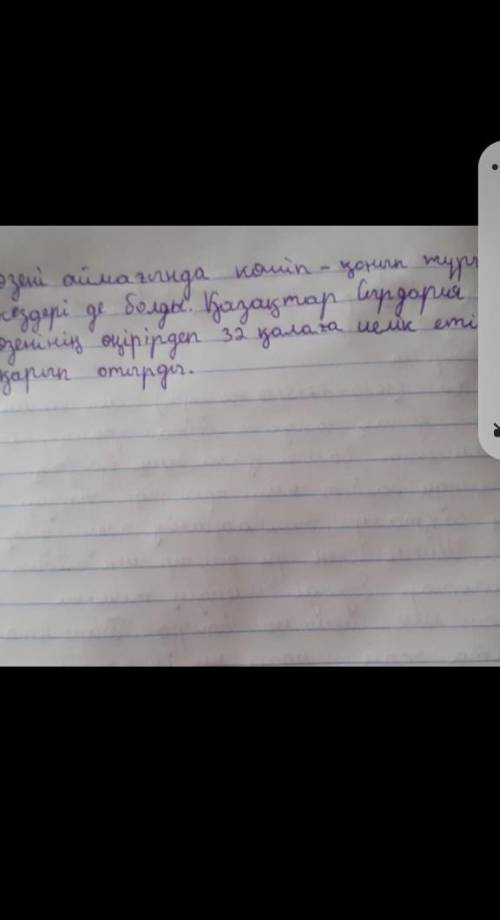 өзені аймағында көшіп - қонып тұрғ
кездері де болды. Қазақтар Сырдария
өзенінің өңірірдеп 32 қалаға иелік еті
қарып отырды.